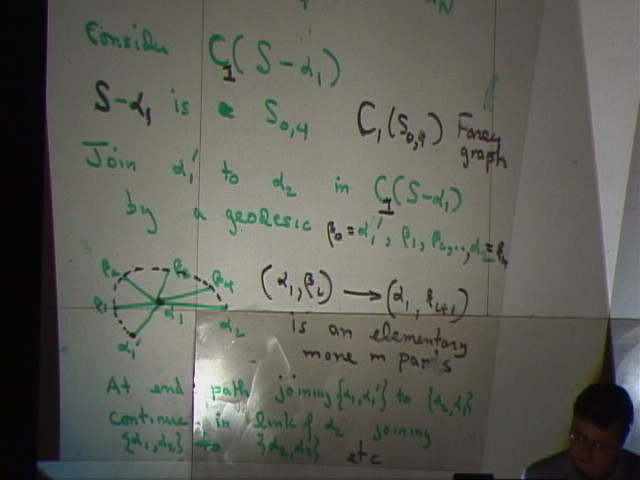 N
Consider C₁(S - α₁)
S - α₁ is a S₀,₄ C₁(S₀,₄) Farey
graph
Join α₁' to α₂ in C₁(S-α₁)
by a geodesic β₀ = α₁', β₁, β₂, .., α₂ = βₖ
(α₁, βᵢ) → (α₁, βᵢ₊₁)
is an elementary
move in pants
β₁ β₂ β₃ β₄ α₁ α₂ α₁'
At end path joining {α₁,α₁'} to {α₂,α₁}
Continue in link of α₂ joining
{α₁,α₂} to {α₂,α₃} etc